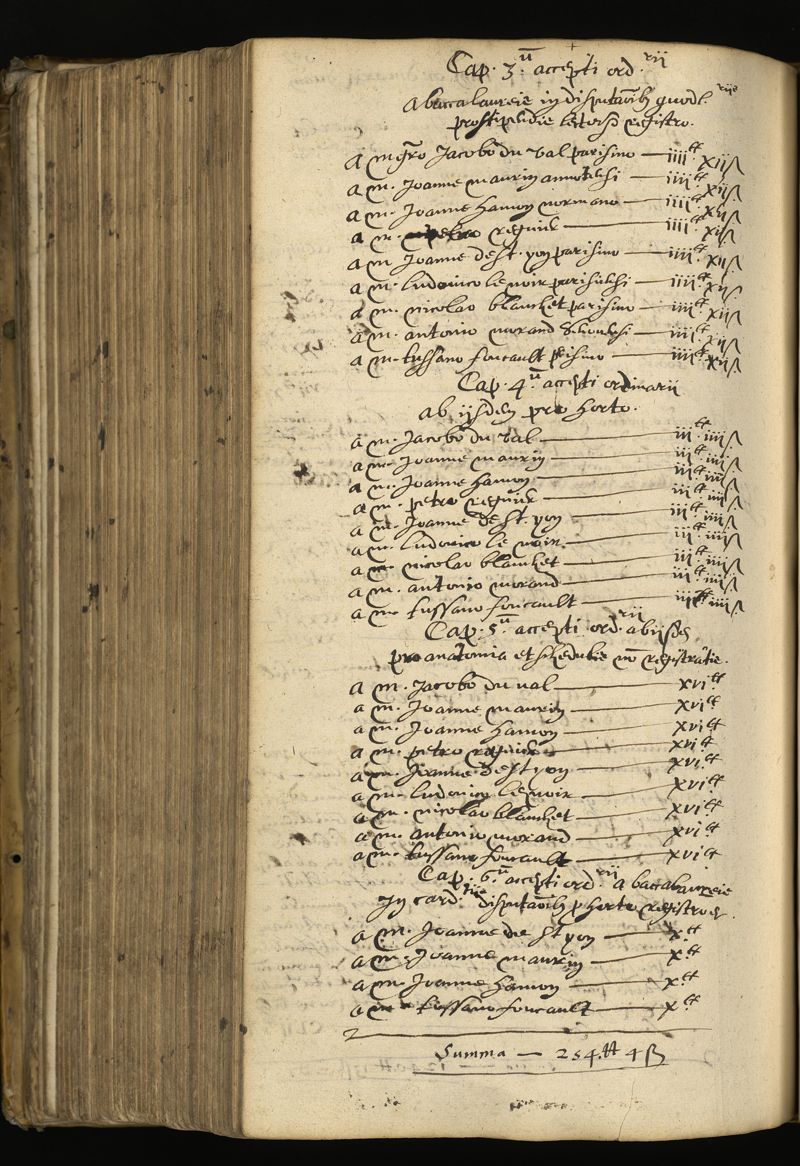 Cap. 3.u accepti ord.rii
A baccalaureis in disputaõib quodl.riis
pro stipendie registro.
A mgro Jacobo du val parisino — iiii tt xii ß
A m. Joanne maurin — iiii tt xii ß
A m. Joanne hamon normano — iiii tt xii ß
A m. petro regnier — iiii tt xii ß
A m Joanne de st. yon parisino — iiii tt xii ß
A m. ludovico le noir parisiensi — iiii tt xii ß
A m. nicolao blancket parisino — iiii tt xii ß
A m. antonio morand — iiii tt xii ß
A m. tussano foucault prisino — iiii tt xii ß
Cap. 4.u accepti ordinarii
Ab iisdem pro horto.
A m. Jacobo du val — iii tt iiii ß
A m. Joanne maurin — iii tt iiii ß
A m. Joanne hamon — iii tt iiii ß
A m. petro regnier — iii tt iiii ß
A m. Joanne de st. yon — iii tt iiii ß
A m. ludovico le noir. — iii tt iiii ß
A m. nicolao blancket — iii tt iiii ß
A m. antonio morand — iii tt iiii ß
A m. tussano foucault — iii tt iiii ß
Cap. 5.u accepti ord.rii ab iisdem
pro anatomia et nõ
A m. Jacobo du val — xvi tt
A m. Joanne maurin — xvi tt
A m. Joanne hamon — xvi tt
A m. petro regnier — xvi tt
A m. Joanne de st yon — xvi tt
A m. ludovico le noir — xvi tt
A m. nicolao blancket — xvi tt
A m. antonio morand — xvi tt
A m. tussano foucault — xvi tt
Cap. 6.u accepti ord.rii a baccalaureis
In card. disputaõib p horto
A m. Joanne de st yon — x tt
A m. Joanne maurin — x tt
A m. Joanne hamon — x tt
A m. tussano foucault — x tt
Summa — 254 tt 4 ß